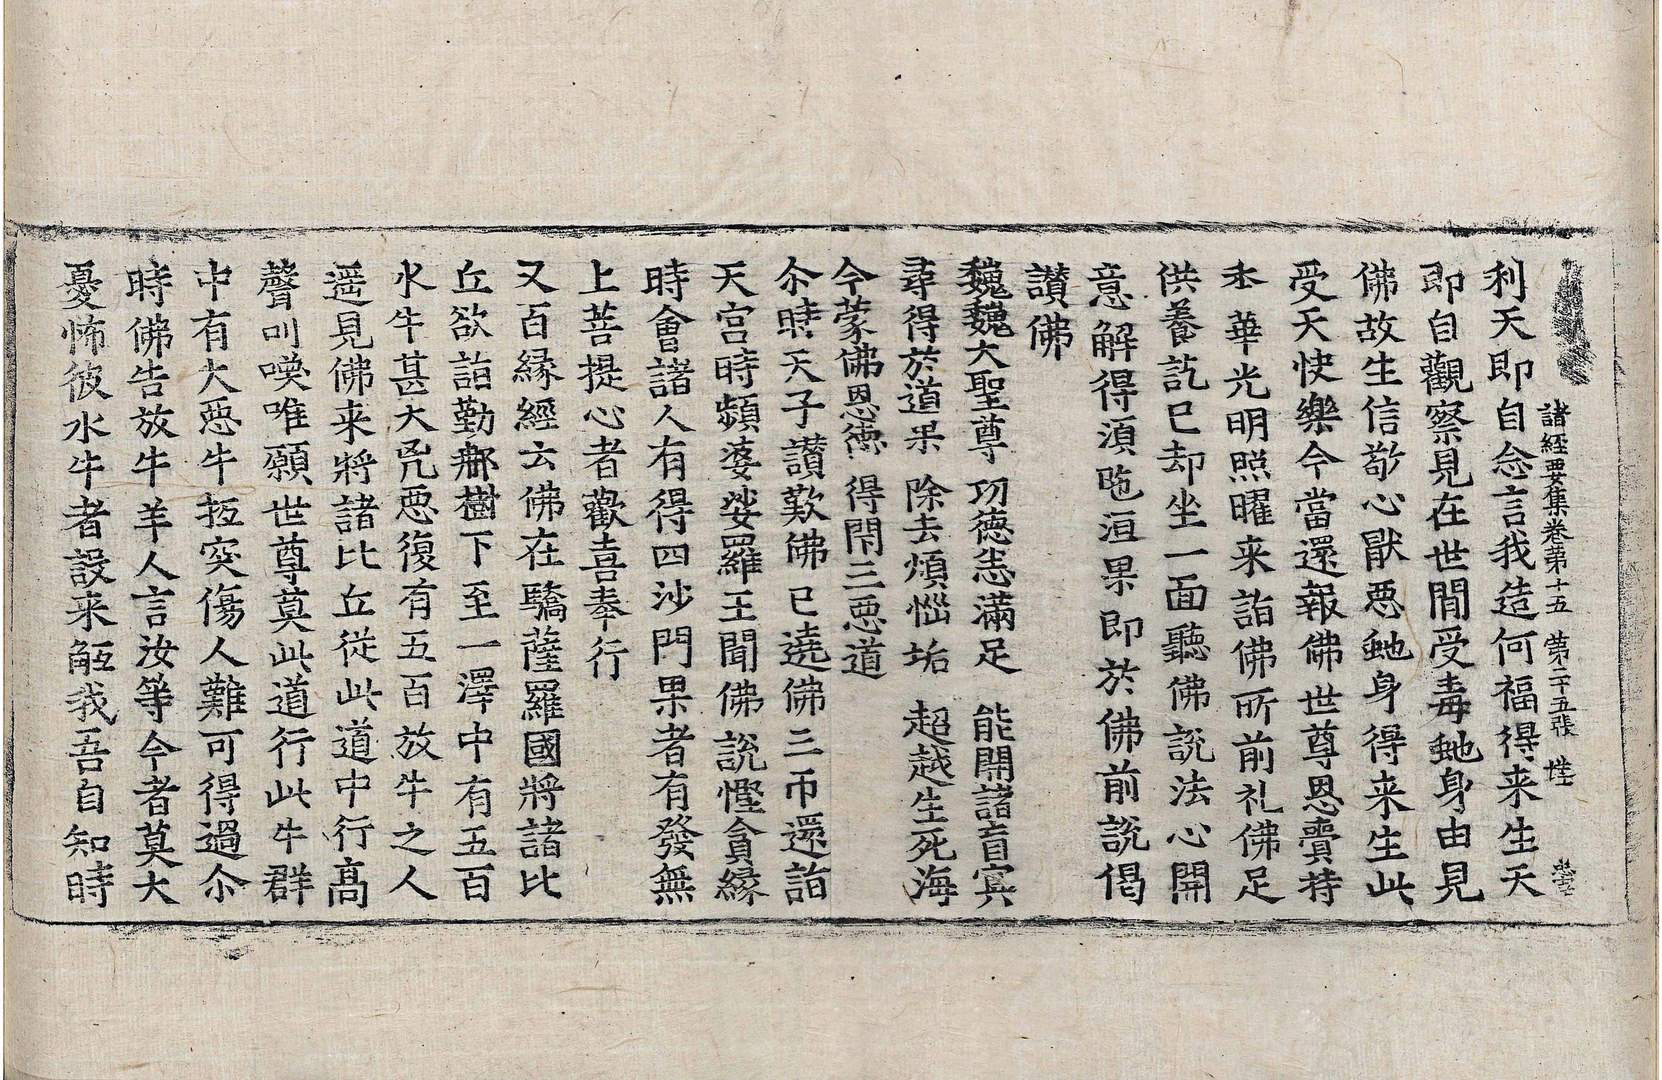 諸經要集卷苐十五 苐二十五張 性
利天即自念言我造何福得来生天
即自觀察見在世間受毒虵身由見
佛故生信敬心猒惡虵身得来生此
受天快樂今當還報佛世尊恩賷持
香華光明照曜来詣佛所前礼佛足
供養訖已却坐一面聽佛說法心開
意解得湏陁洹果即於佛前說偈
讃佛
巍巍大聖尊 㓛德悉滿足 能開諸盲㝠
尋得於道果 除去煩惱垢 超越生死海
今蒙佛恩德 得閇三惡道
尒時天子讃歎佛已遶佛三帀還詣
天宮時頻婆娑羅王聞佛說慳貪緣
時會諸人有得四沙門果者有發無
上菩提心者歡喜奉行
又百緣經云佛在驕薩羅國將諸比
丘欲詣勤那樹下至一澤中有五百
水牛甚大㐫惡復有五百放牛之人
遥見佛来將諸比丘從此道中行高
聲叫喚唯願世尊莫此道行此牛群
中有大惡牛抵突傷人難可得過尒
時佛告放牛羊人言汝等今者莫大
憂怖彼水牛者設来觝我吾自知時